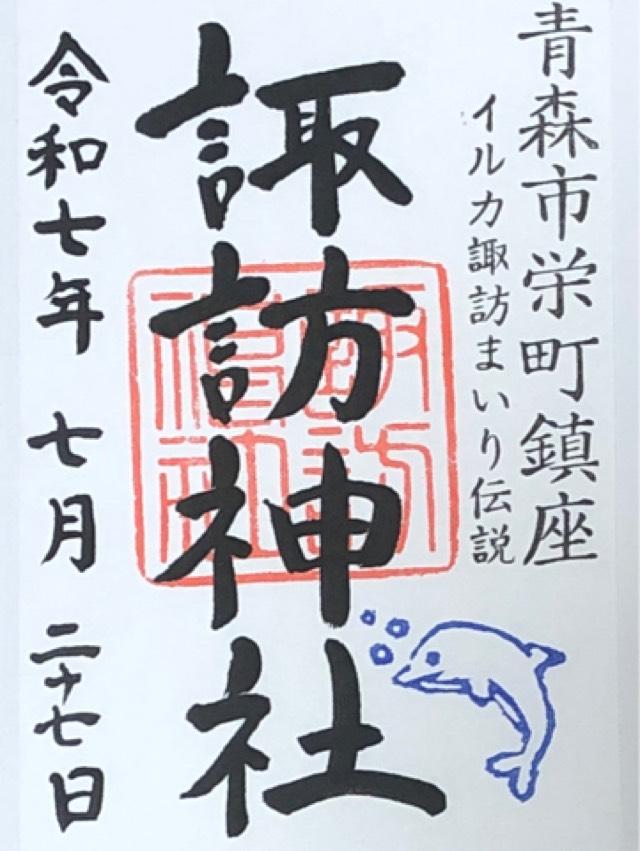 青森市栄町鎮座
イルカ諏訪まいり伝説
諏訪神社
令和七年 七月 二十七日